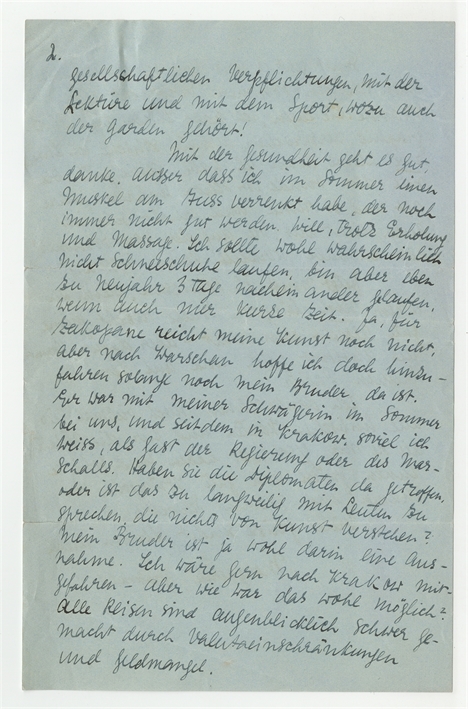 2.
gesellschaftlichen Verpflichtungen, mit der
Lektüre und mit dem Sport, wozu auch
der Garden gehört!
Mit der Gesundheit geht es gut,
danke, ausser dass ich im Sommer einen
Muskel am Fuss verrenkt habe, der noch
immer nicht gut werden will, trotz Erholung
und Massage. Ich sollte wohl wahrscheinlich
nicht Schneeschuhe laufen, bin aber eben
zu Neujahr 3 Tage nacheinander gelaufen,
wenn auch nur kurze Zeit. Ja, für
Zakopane reicht meine Kunst noch nicht,
aber nach Warschau hoffe ich doch hinzu-
fahren solange noch mein Bruder da ist.
Er war mit meiner Schwägerin im Sommer
bei uns, und seitdem in Krakow, soviel ich
weiss, als Gast der Regierung oder des Mar-
schalls. Haben Sie die Diplomaten da getroffen,
oder ist das zu langweilig mit Leuten zu
sprechen, die nichts von Kunst verstehen?
Mein Bruder ist ja wohl darin eine Aus-
nahme. Ich wäre gern nach Krakow mit-
gefahren – aber wie war das wohl möglich?
Alle Reisen sind augenblicklich schwer ge-
macht durch Valutaeinschränkungen
und Geldmangel.